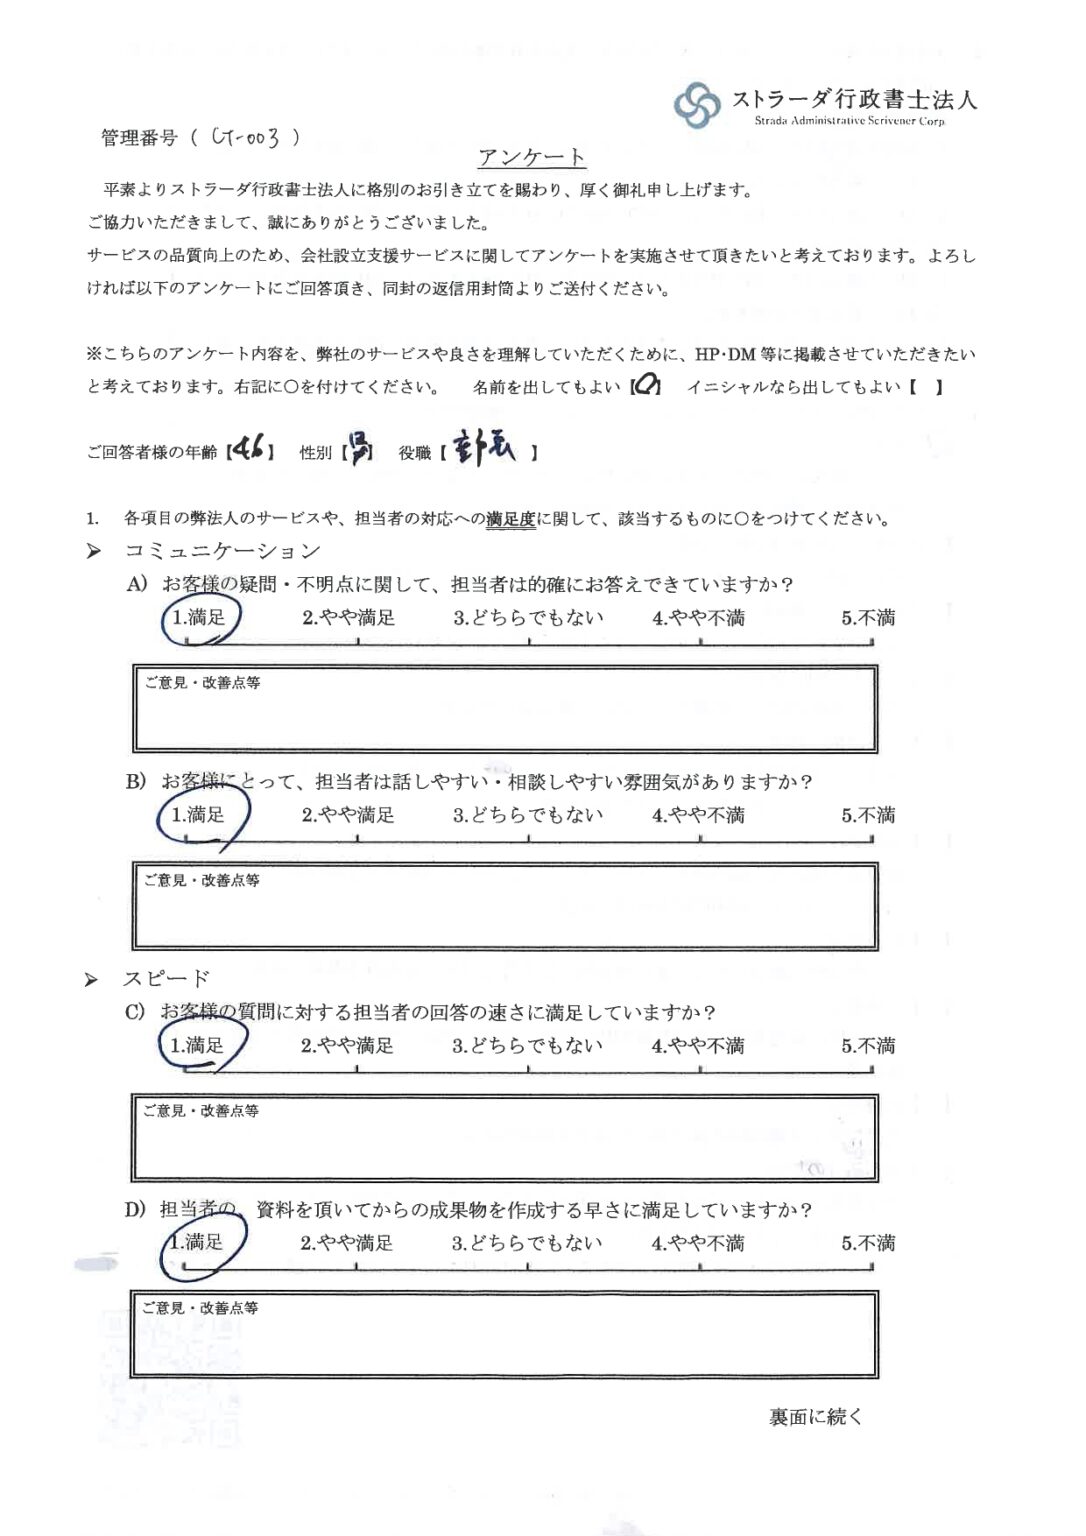 ストラーダ行政書士法人
Strada Administrative Scrivener Corp.
管理番号（ CT-003 ）
アンケート
平素よりストラーダ行政書士法人に格別のお引き立てを賜わり、厚く御礼申し上げます。
ご協力いただきまして、誠にありがとうございました。
サービスの品質向上のため、会社設立支援サービスに関してアンケートを実施させて頂きたいと考えております。よろし
ければ以下のアンケートにご回答頂き、同封の返信用封筒よりご送付ください。
※こちらのアンケート内容を、弊社のサービスや良さを理解していただくために、HP・DM 等に掲載させていただきたい
と考えております。右記に〇を付けてください。 名前を出してもよい【〇】 イニシャルなら出してもよい【 】
ご回答者様の年齢【46】 性別【男】 役職【 部長 】
1. 各項目の弊法人のサービスや、担当者の対応への満足度に関して、該当するものに〇をつけてください。
➢ コミュニケーション
A) お客様の疑問・不明点に関して、担当者は的確にお答えできていますか？
1.満足 2.やや満足 3.どちらでもない 4.やや不満 5.不満
ご意見・改善点等
B) お客様にとって、担当者は話しやすい・相談しやすい雰囲気がありますか？
1.満足 2.やや満足 3.どちらでもない 4.やや不満 5.不満
ご意見・改善点等
➢ スピード
C) お客様の質問に対する担当者の回答の速さに満足していますか？
1.満足 2.やや満足 3.どちらでもない 4.やや不満 5.不満
ご意見・改善点等
D) 担当者の、資料を頂いてからの成果物を作成する早さに満足していますか？
1.満足 2.やや満足 3.どちらでもない 4.やや不満 5.不満
ご意見・改善点等
裏面に続く